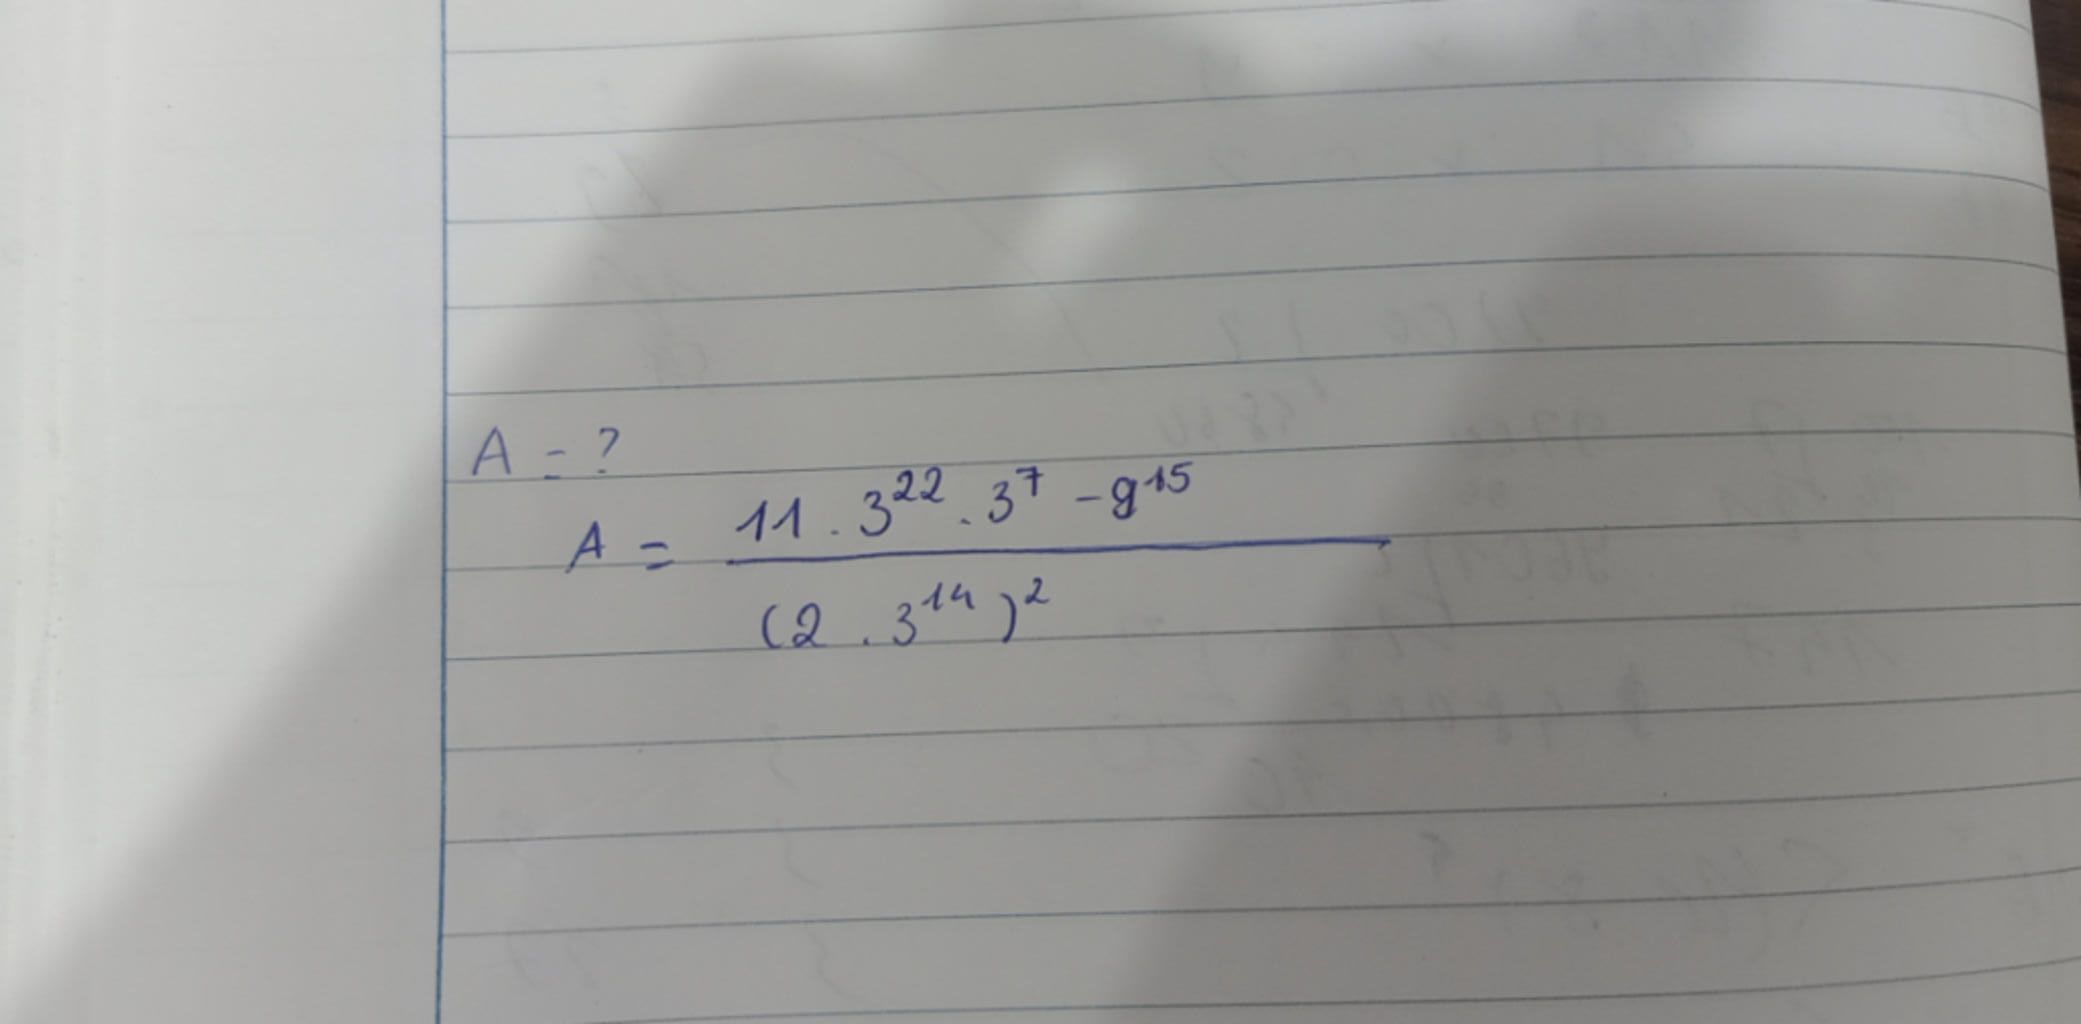 A = ?
A = \frac{11 . 3^{22} . 3^{7} - 9^{15}}{(2 . 3^{14})^{2}}